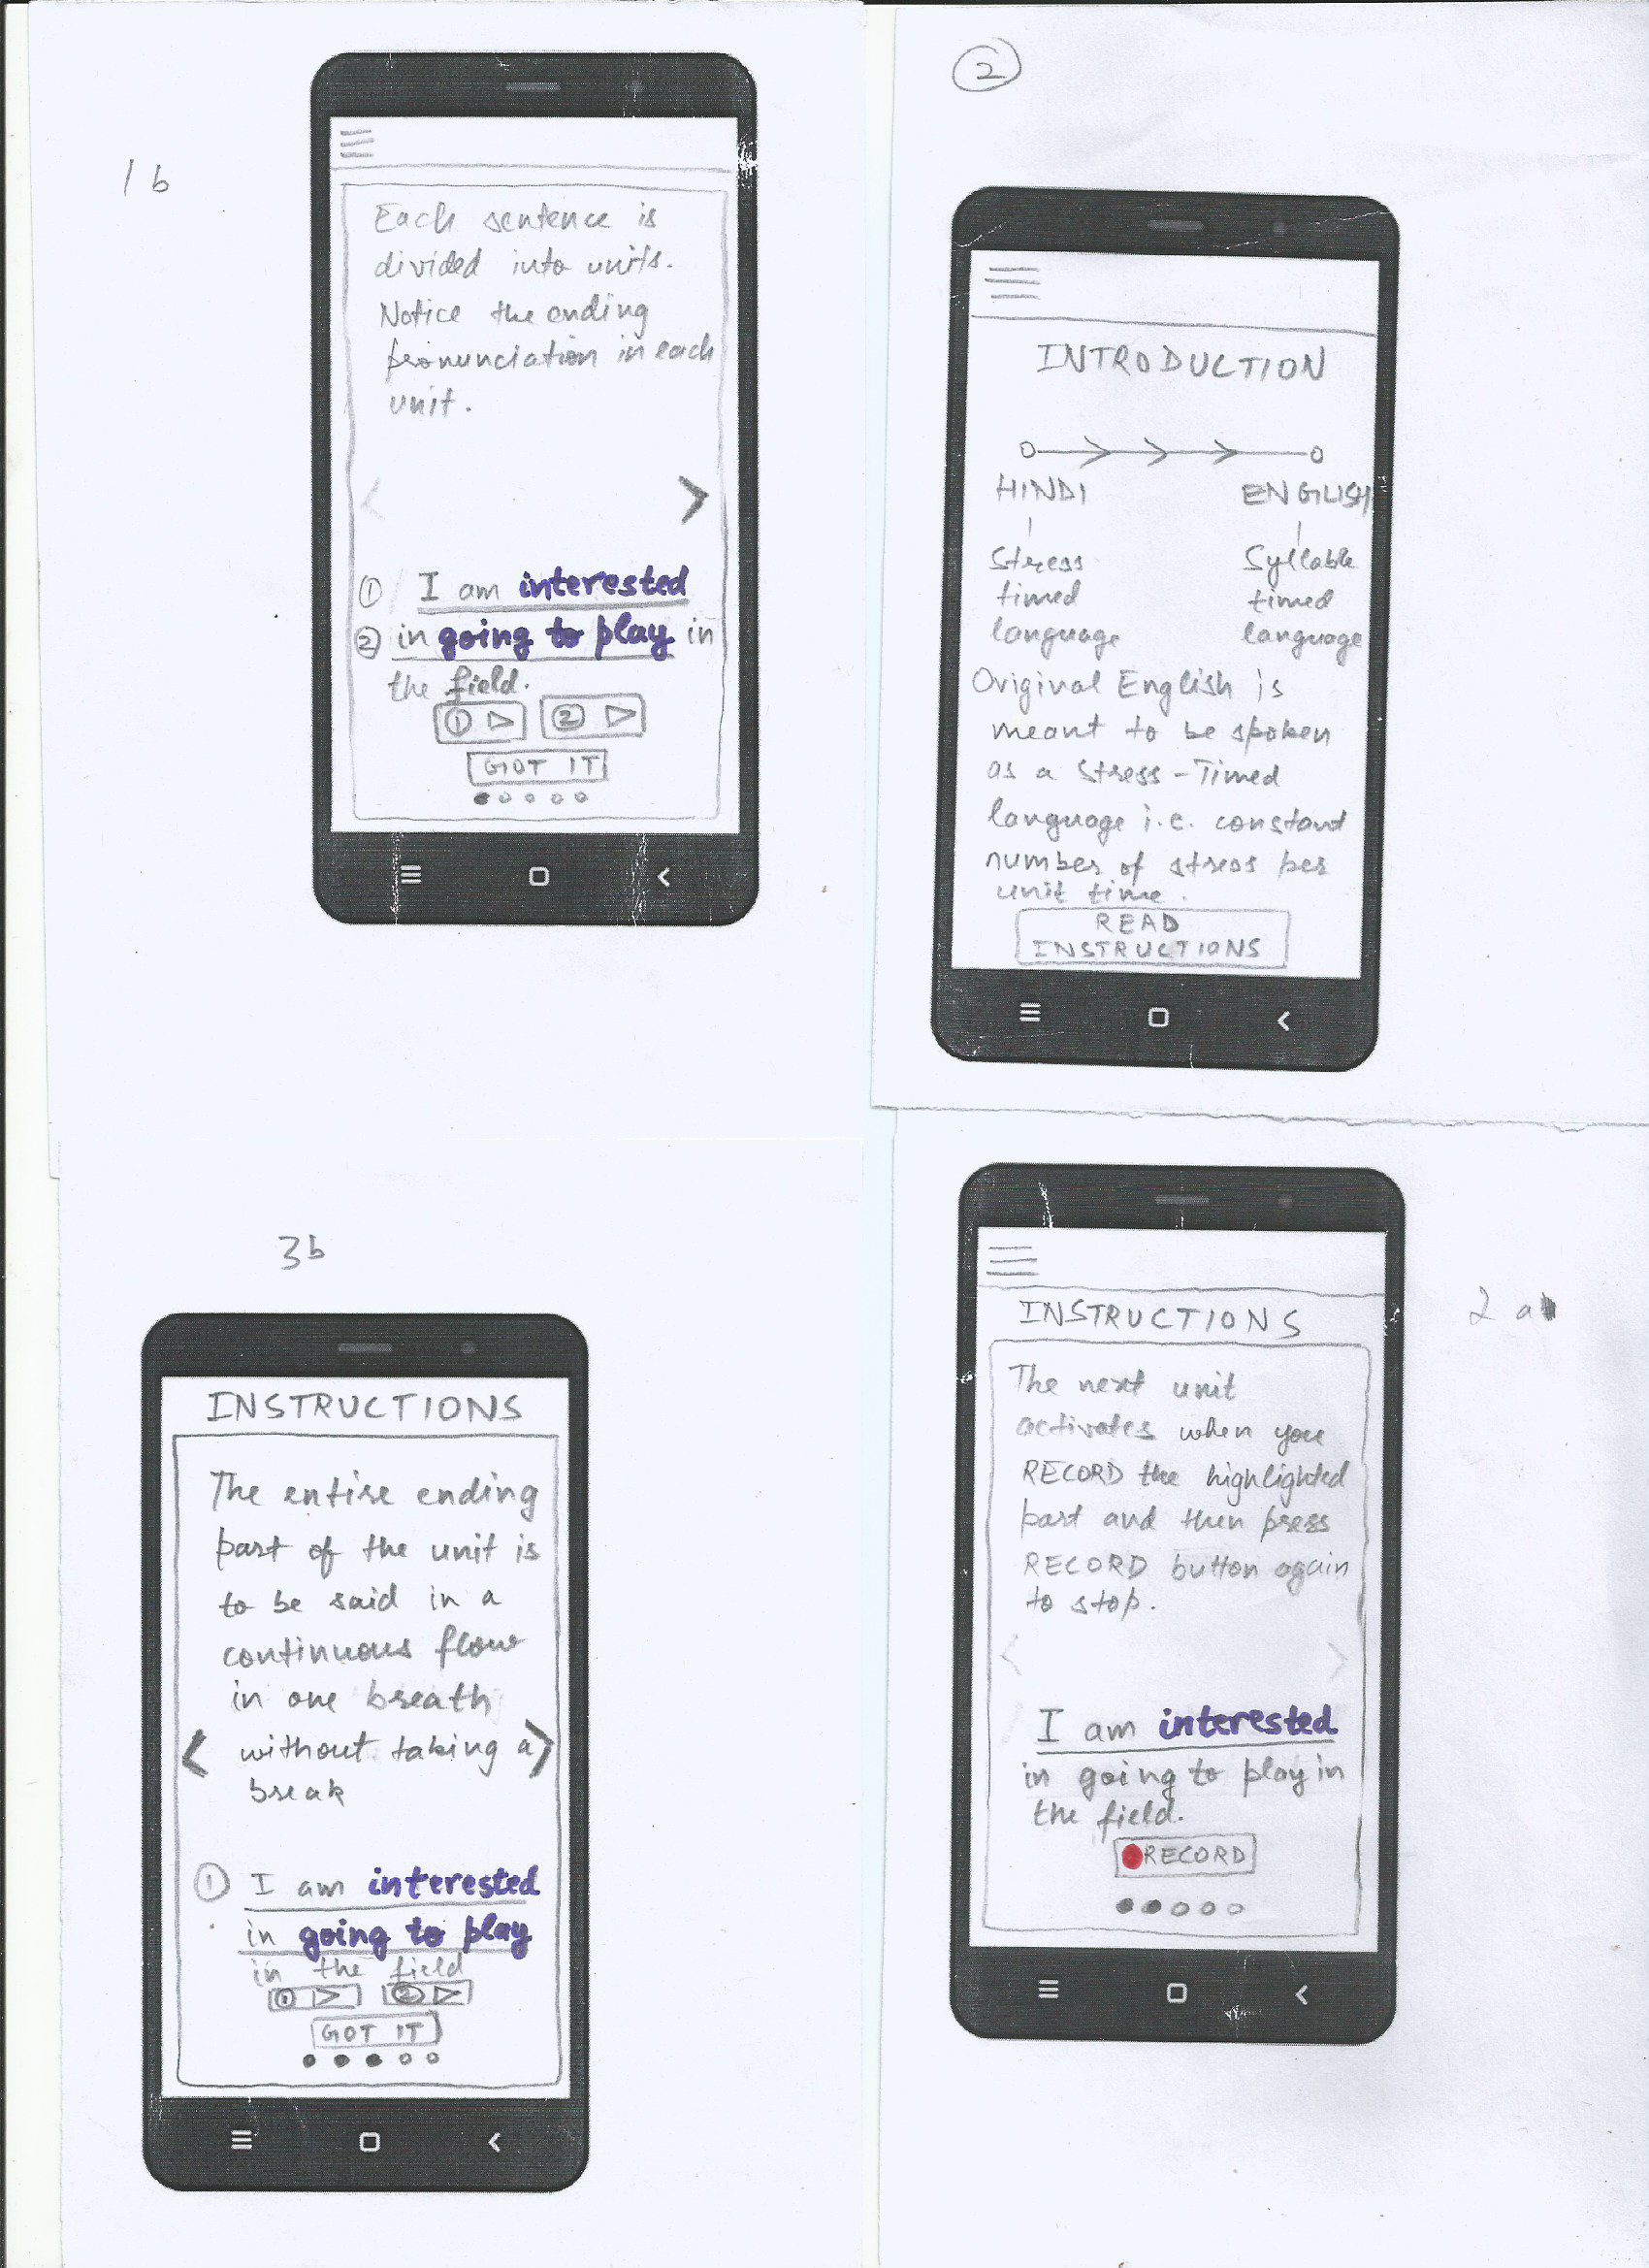 1b
Each sentence is
divided into units.
Notice the ending
pronunciation in each
unit.
① I am interested
② in going to play in
the field.
① ②
GOT IT
②
INTRODUCTION
HINDI ENGLISH
Stress Syllable
timed timed
language language
Original English is
meant to be spoken
as a Stress-Timed
language i.e. constant
number of stress per
unit time.
READ
INSTRUCTIONS
3b
INSTRUCTIONS
The entire ending
part of the unit is
to be said in a
continuous flow
in one breath
without taking a
break
① I am interested
in going to play
in the field
① ②
GOT IT
2a
INSTRUCTIONS
The next unit
activates when you
RECORD the highlighted
part and then press
RECORD button again
to stop.
I am interested
in going to play in
the field.
RECORD